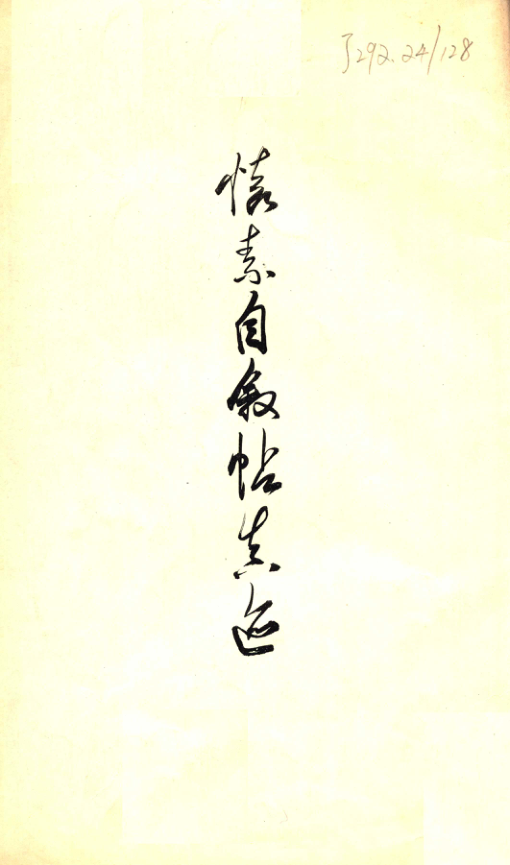 J292.24/128
懷素自敘帖真迹